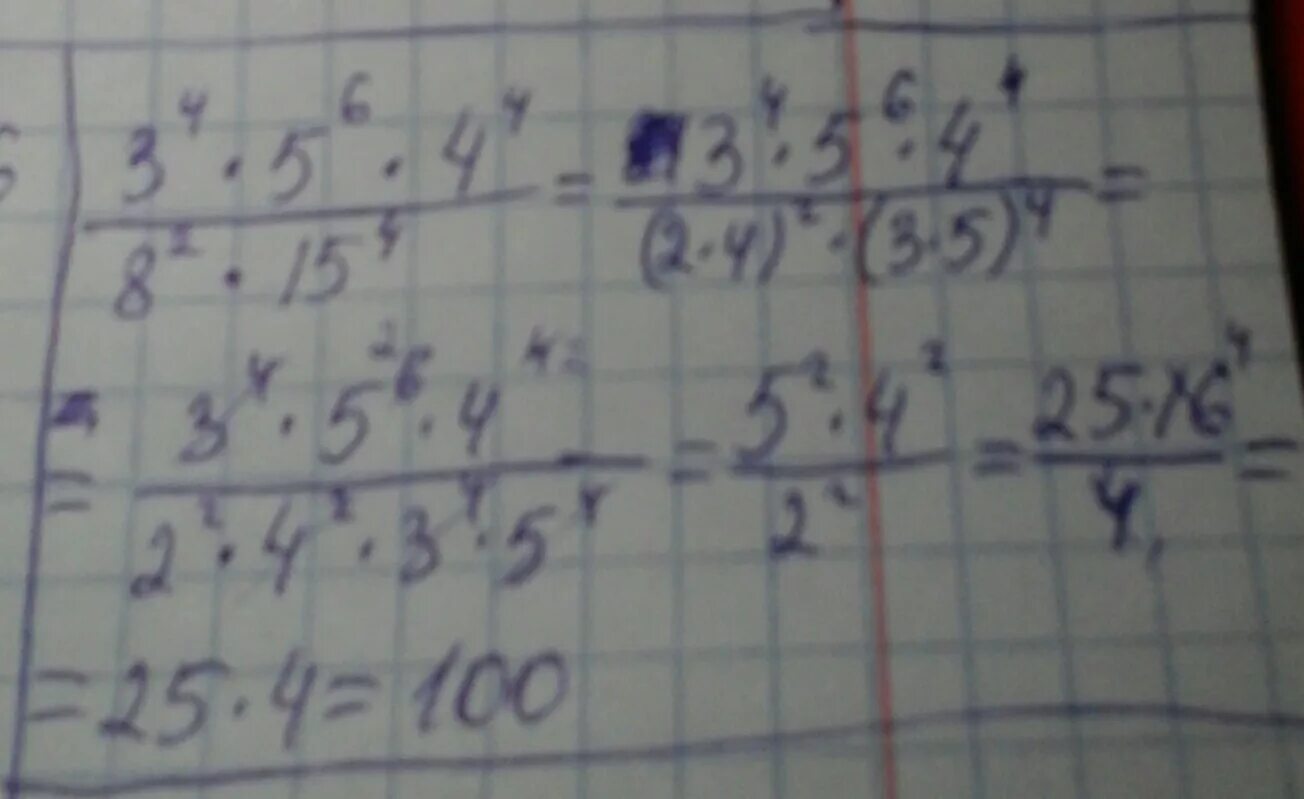 3⁴ · 5⁶ · 4⁴ / 8² · 15⁴ = 3⁴ · 5⁶ · 4⁴ / (2·4)² · (3·5)⁴ =
= 3⁴ · 5⁶ · 4⁴ / 2² · 4² · 3⁴ · 5⁴ = 5² · 4² / 2² = 25·16 / 4 =
= 25 · 4 = 100